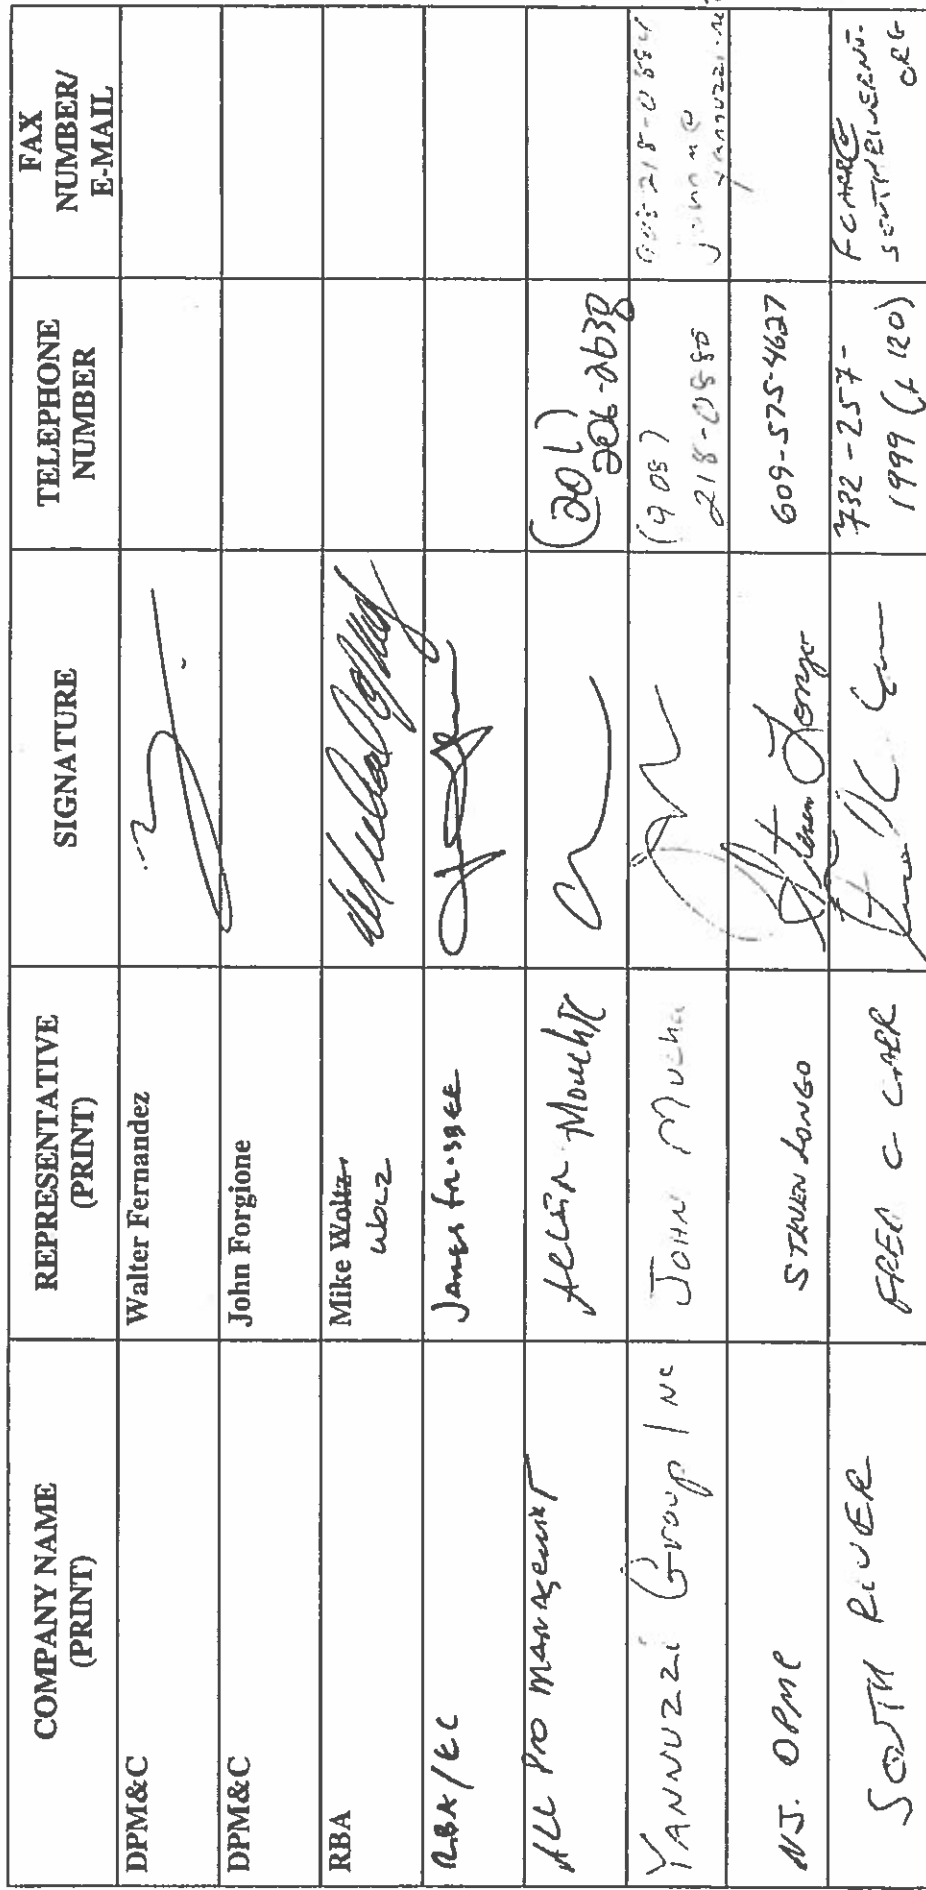 COMPANY NAME (PRINT) REPRESENTATIVE (PRINT) SIGNATURE TELEPHONE NUMBER FAX NUMBER/ E-MAIL
DPM&C Walter Fernandez
DPM&C John Forgione
RBA Mike Woltz
Wolz
RBA/EC James
ALL Pro Management (201)
206-2630
YANNUZZI Group INC JOHN Mucha (908)
218-0880 908-218-0884
johnm@
yannuzzi.net
NJ. OPMC STEVEN LONGO Steven Longo 609-575-4627
SOUTH RIVER FRED C CARR 732-257-
1999 (x 120) FCARR@
SOUTHRIVERNJ.
ORG